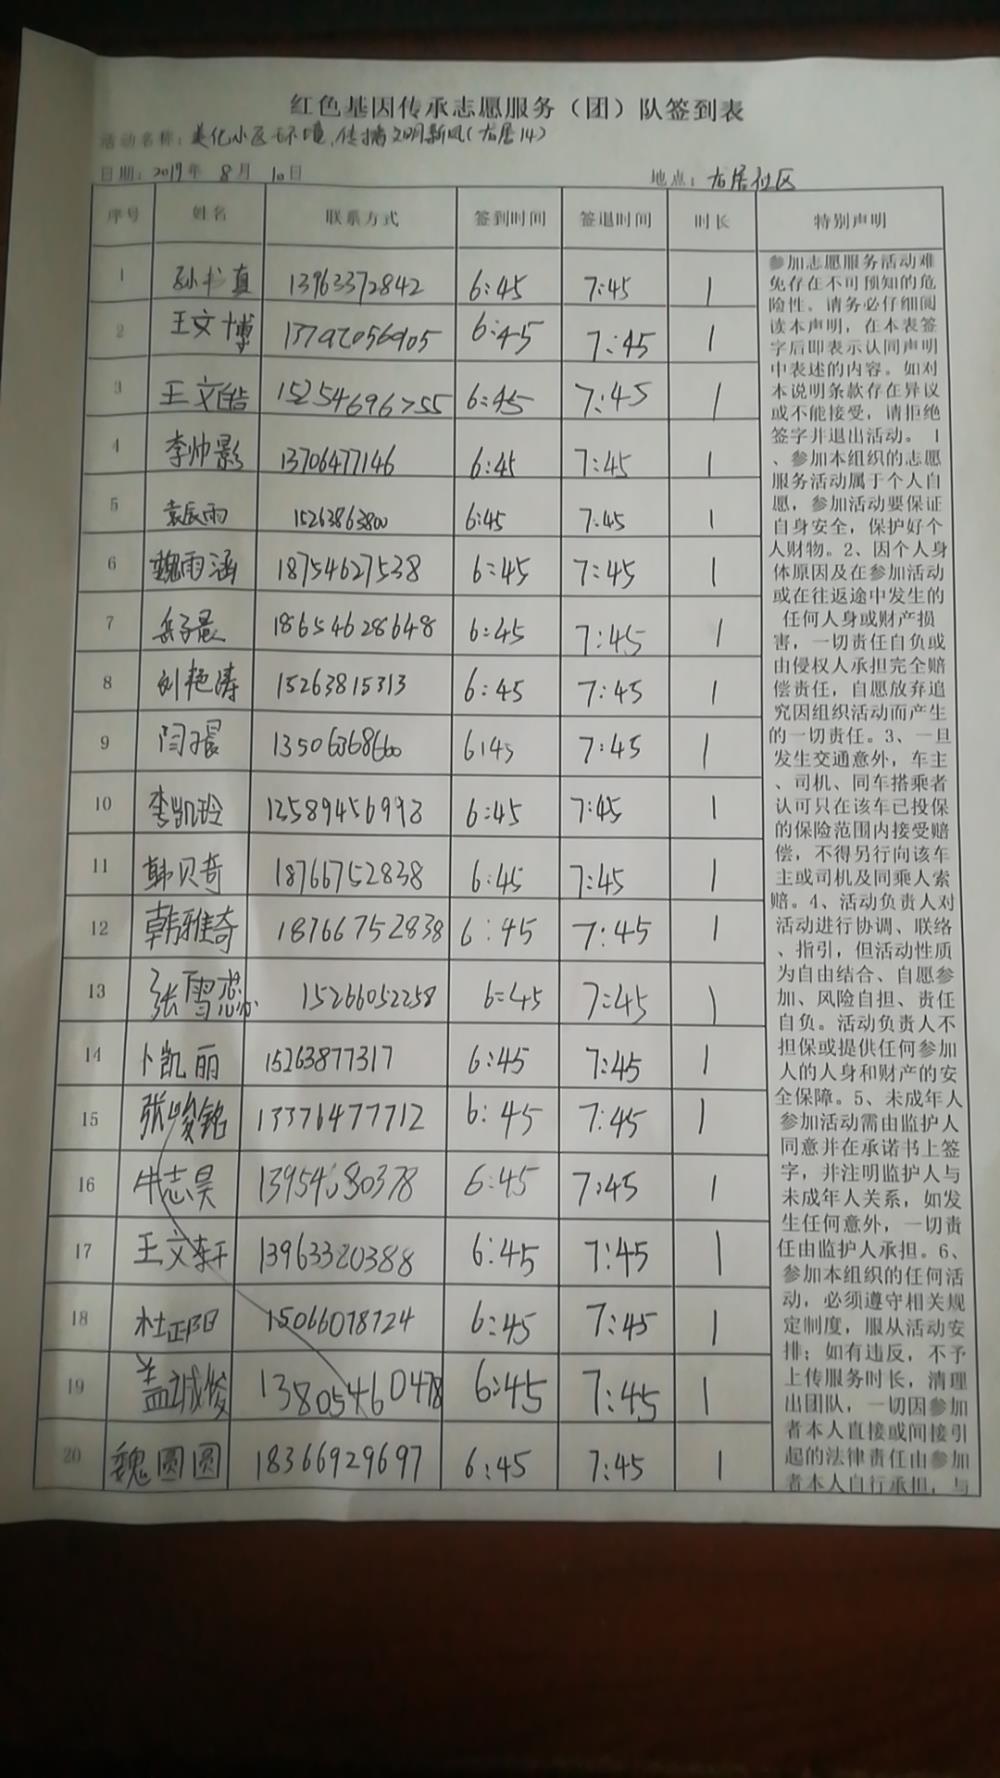 红色基因传承志愿服务（团）队签到表
活动名称：美化小区环境,传播文明新风(古居14)
日期：2019年 8月 10日 地点：古居社区
序号 姓名 联系方式 签到时间 签退时间 时长 特别声明
1 孙书真 13963372842 6:45 7:45 1
2 王文博 13792056905 6:45 7:45 1
3 王文皓 15254696755 6:45 7:45 1
4 李帅影 13706477146 6:45 7:45 1
5 袁辰雨 15263863800 6:45 7:45 1
6 魏雨涵 18754627538 6:45 7:45 1
7 岳子晨 18654628648 6:45 7:45 1
8 刘艳涛 15263815313 6:45 7:45 1
9 闫子晨 13506368660 6:45 7:45 1
10 李凯玲 13589456993 6:45 7:45 1
11 韩贝奇 18766752838 6:45 7:45 1
12 韩雅奇 18766752838 6:45 7:45 1
13 张雪蕊 15266052258 6:45 7:45 1
14 卜凯丽 15263877317 6:45 7:45 1
15 张峻铭 13376477712 6:45 7:45 1
16 牛志昊 13954680378 6:45 7:45 1
17 王文轩 13963320388 6:45 7:45 1
18 杜正阳 15066078724 6:45 7:45 1
19 盖诚俊 13805460478 6:45 7:45 1
20 魏圆圆 18366929697 6:45 7:45 1
参加志愿服务活动难
免存在不可预知的危
险性。请务必仔细阅
读本声明，在本表签
字后即表示认同声明
中表述的内容。如对
本说明条款存在异议
或不能接受，请拒绝
签字并退出活动。 1
、参加本组织的志愿
服务活动属于个人自
愿，参加活动要保证
自身安全，保护好个
人财物。2、因个人身
体原因及在参加活动
或在往返途中发生的
任何人身或财产损
害，一切责任自负或
由侵权人承担完全赔
偿责任，自愿放弃追
究因组织活动而产生
的一切责任。3、一旦
发生交通意外，车主
、司机、同车搭乘者
认可只在该车已投保
的保险范围内接受赔
偿，不得另行向该车
主或司机及同乘人索
赔。4、活动负责人对
活动进行协调、联络
、指引，但活动性质
为自由结合、自愿参
加、风险自担、责任
自负。活动负责人不
担保或提供任何参加
人的人身和财产的安
全保障。5、未成年人
参加活动需由监护人
同意并在承诺书上签
字，并注明监护人与
未成年人关系，如发
生任何意外，一切责
任由监护人承担。6、
参加本组织的任何活
动，必须遵守相关规
定制度，服从活动安
排；如有违反，不予
上传服务时长，清理
出团队，一切因参加
者本人直接或间接引
起的法律责任由参加
者本人自行承担，与